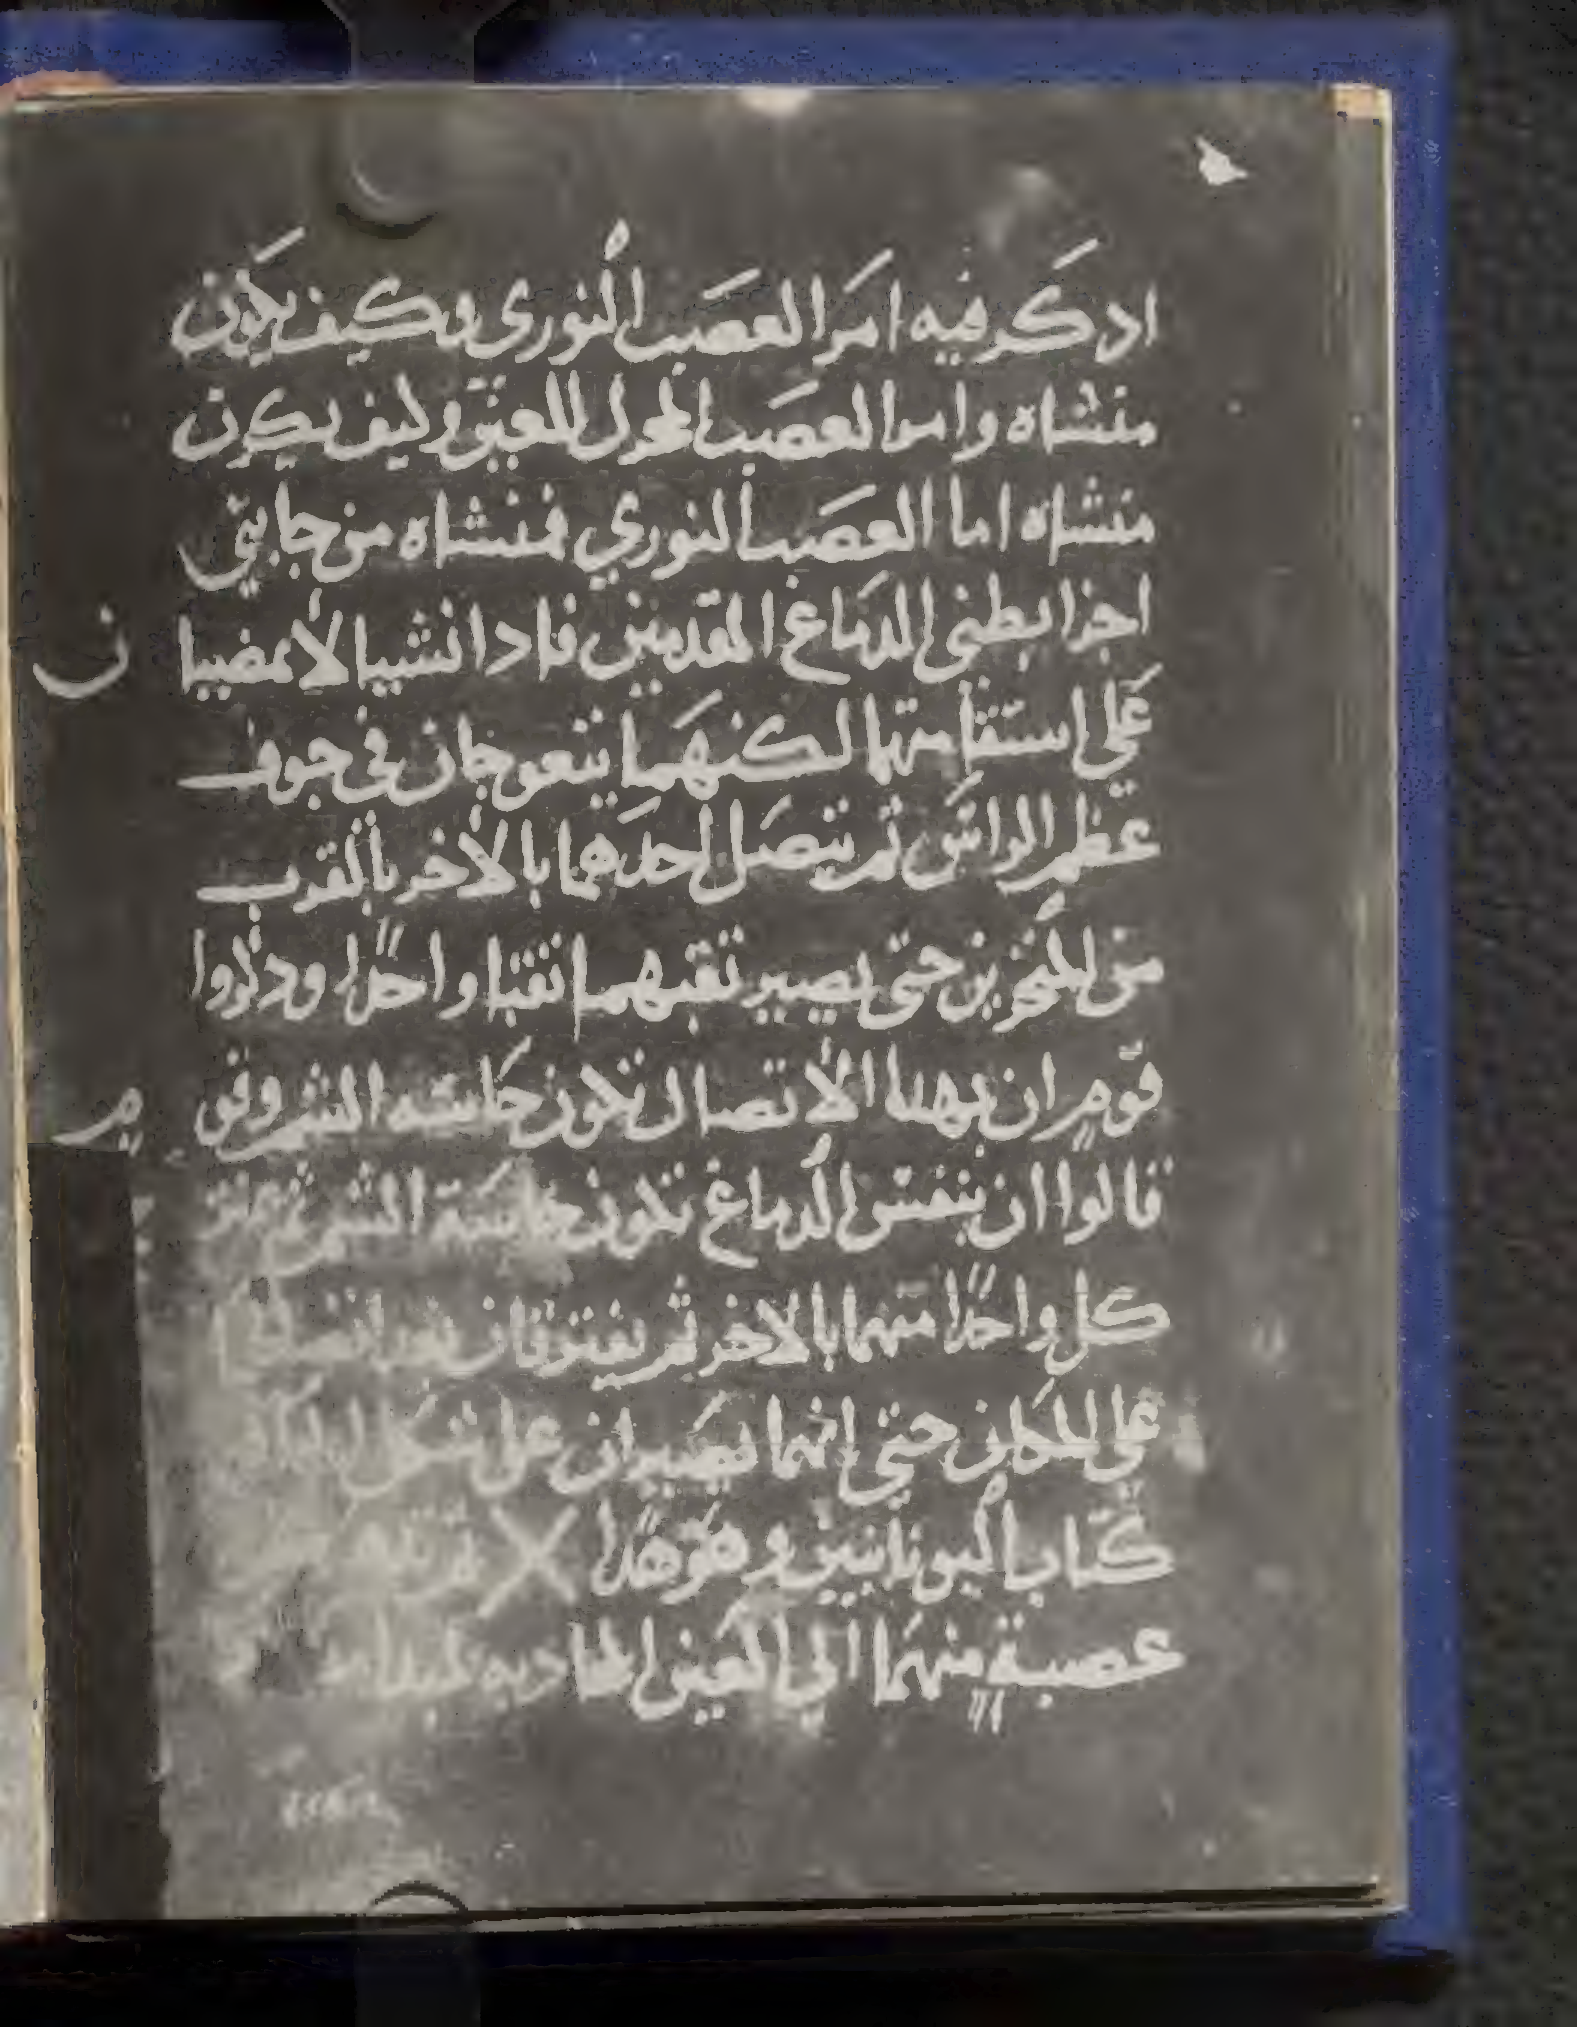 اذكر فيه امر العصب النوري وكيف يكون
منشاه وامر العصب المحرك للعين وكيف يكون
منشاه اما العصب النوري فمنشاه من جانبي
اجزا بطني الدماغ المقدمين فاذا نشيا لا يمضيا
ن
علي استقامتهما لكنهما يتعوجان في جوف
عظم الراس ثم يتصل احدهما بالاخر بالقرب
من المنخرين حتى يصير ثقبهما ثقبا واحدا وذكروا
قوم ان بهذا الاتصال تكون حاسه الشم وقو
م
قالوا ان بنفس الدماغ تكون حاسة الشم ثم
كل واحدا منهما بالاخر ثم يفترقان
علي المكان حتي انهما يصيران على شكل
كتاب اليونانيين وهو هذا X
عصبة منهما الي العين